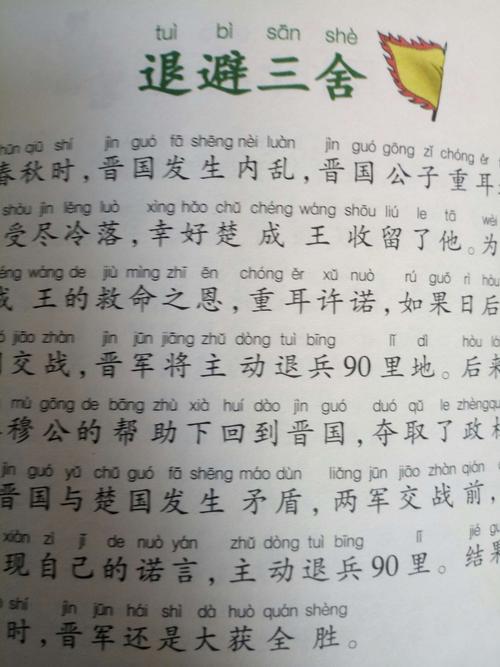 tuì bì sān shè
退避三舍
chūn qiū shí jìn guó fā shēng nèi luàn jìn guó gōng zǐ chóng ěr
春秋时，晋国发生内乱，晋国公子重耳
shòu jìn lěng luò xìng hǎo chǔ chéng wáng shōu liú le tā wèi
受尽冷落，幸好楚成王收留了他。为
chéng wáng de jiù mìng zhī ēn chóng ěr xǔ nuò rú guǒ rì hòu
成王的救命之恩，重耳许诺，如果日后
jiāo zhàn jìn jūn jiāng zhǔ dòng tuì bīng lǐ dì hòu
交战，晋军将主动退兵90里地。后
mù gōng de bāng zhù xià huí dào jìn guó duó qǔ le zhèngqu
穆公的帮助下回到晋国，夺取了政权
jìn guó yǔ chǔ guó fā shēng máo dùn liǎng jūn jiāo zhàn qián
晋国与楚国发生矛盾，两军交战前，
xiàn zì jǐ de nuò yán zhǔ dòng tuì bīng lǐ jié g
现自己的诺言，主动退兵90里。结果
shí jìn jūn hái shì dà huò quán shèng
时，晋军还是大获全胜。